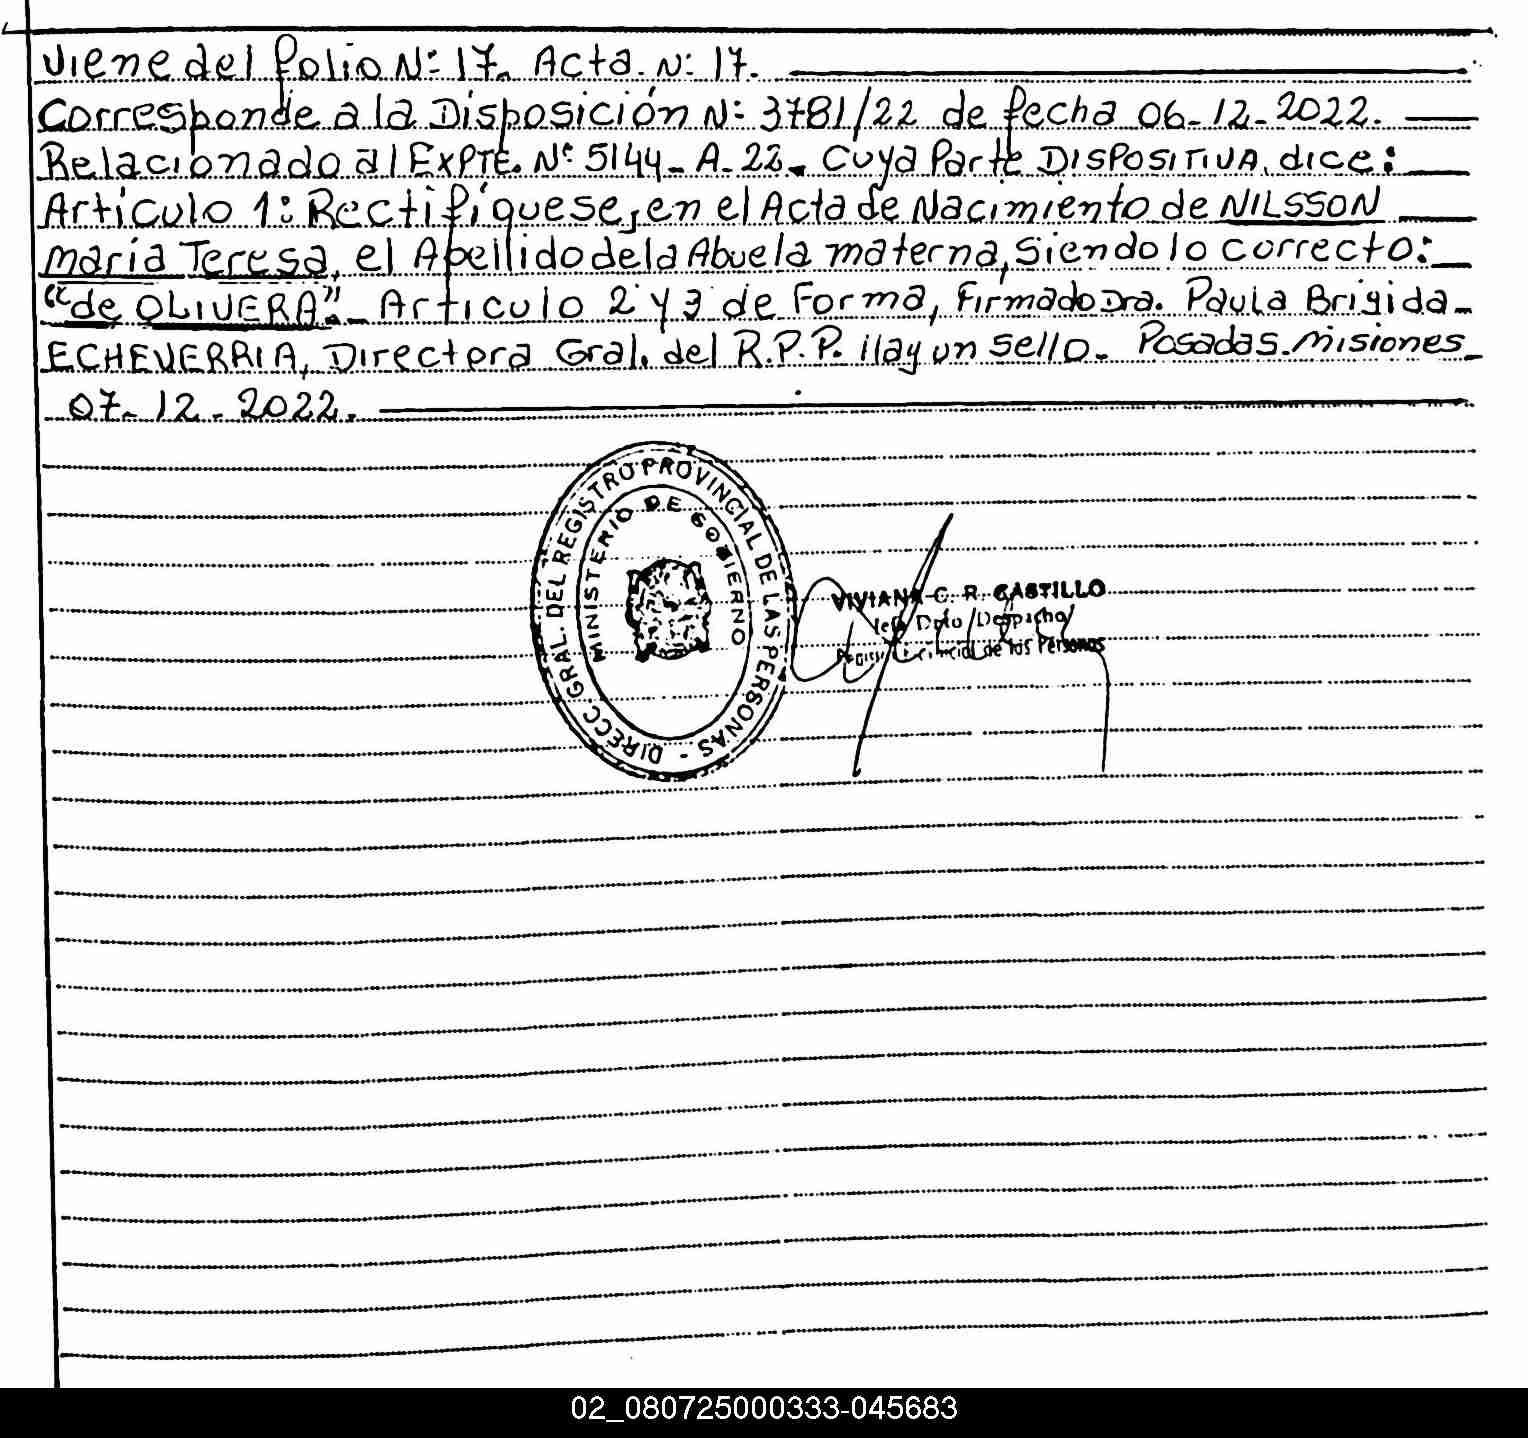 Viene del folio N: 17. Acta. N: 17.
Corresponde a la Disposición N: 3781/22 de fecha 06-12-2022.
Relacionado al EXPTE. N: 5144-A-22. Cuya Parte DISPOSITIVA, dice:
Artículo 1: Rectifíquese, en el Acta de Nacimiento de NILSSON
María Teresa, el Apellido de la Abuela materna, Siendo lo correcto:
"de OLIVERA". Artículo 2 y 3 de Forma, Firmado Dra. Paula Brigida
ECHEVERRIA, Directora Gral. del R.P.P. Hay un sello. Posadas. Misiones
07-12-2022.
DIRECC GRAL. DEL REGISTRO PROVINCIAL DE LAS PERSONAS -
MINISTERIO DE GOBIERNO
VIVIANA C. R. CASTILLO
Jefa Dpto Despacho
de las Personas
02_080725000333-045683